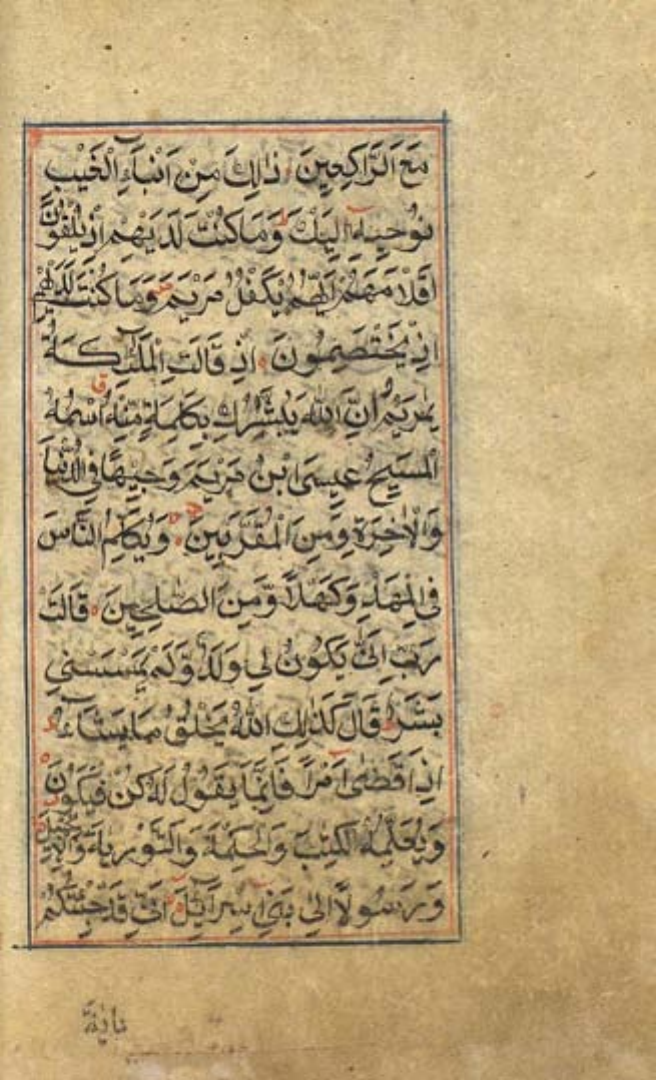 مَعَ الرَّاكِعِينَ ذٰلِكَ مِنْ اَنْبَاۤءِ الْغَيْبِ
نُوحِيهِ اِلَيْكَ وَمَا كُنْتَ لَدَيْهِمْ اِذْ يُلْقُونَ
اَقْلَامَهُمْ اَيُّهُمْ يَكْفُلُ مَرْيَمَ وَمَا كُنْتَ لَدَيْهِمْ
اِذْ يَخْتَصِمُونَ اِذْ قَالَتِ الْمَلٰۤئِكَةُ
يٰمَرْيَمُ اِنَّ اللّٰهَ يُبَشِّرُكِ بِكَلِمَةٍ مِنْهُ اسْمُهُ
الْمَسِيحُ عِيسَى ابْنُ مَرْيَمَ وَجِيهًا فِي الدُّنْيَا
وَالْاٰخِرَةِ وَمِنَ الْمُقَرَّبِينَ وَيُكَلِّمُ النَّاسَ
فِي الْمَهْدِ وَكَهْلًا وَّمِنَ الصّٰلِحِينَ قَالَتْ
رَبِّ اَنّٰى يَكُونُ لِي وَلَدٌ وَّلَمْ يَمْسَسْنِي
بَشَرٌ قَالَ كَذٰلِكِ اللّٰهُ يَخْلُقُ مَا يَشَاۤءُ
اِذَا قَضٰۤى اَمْرًا فَاِنَّمَا يَقُولُ لَهُ كُنْ فَيَكُونُ
وَيُعَلِّمُهُ الْكِتٰبَ وَالْحِكْمَةَ وَالتَّوْرٰيةَ وَالْاِنْجِيلَ
وَرَسُولًا اِلٰى بَنِۤي اِسْرَاۤئِيلَ اَنِّي قَدْ جِئْتُكُمْ
بِاٰيَةٍ